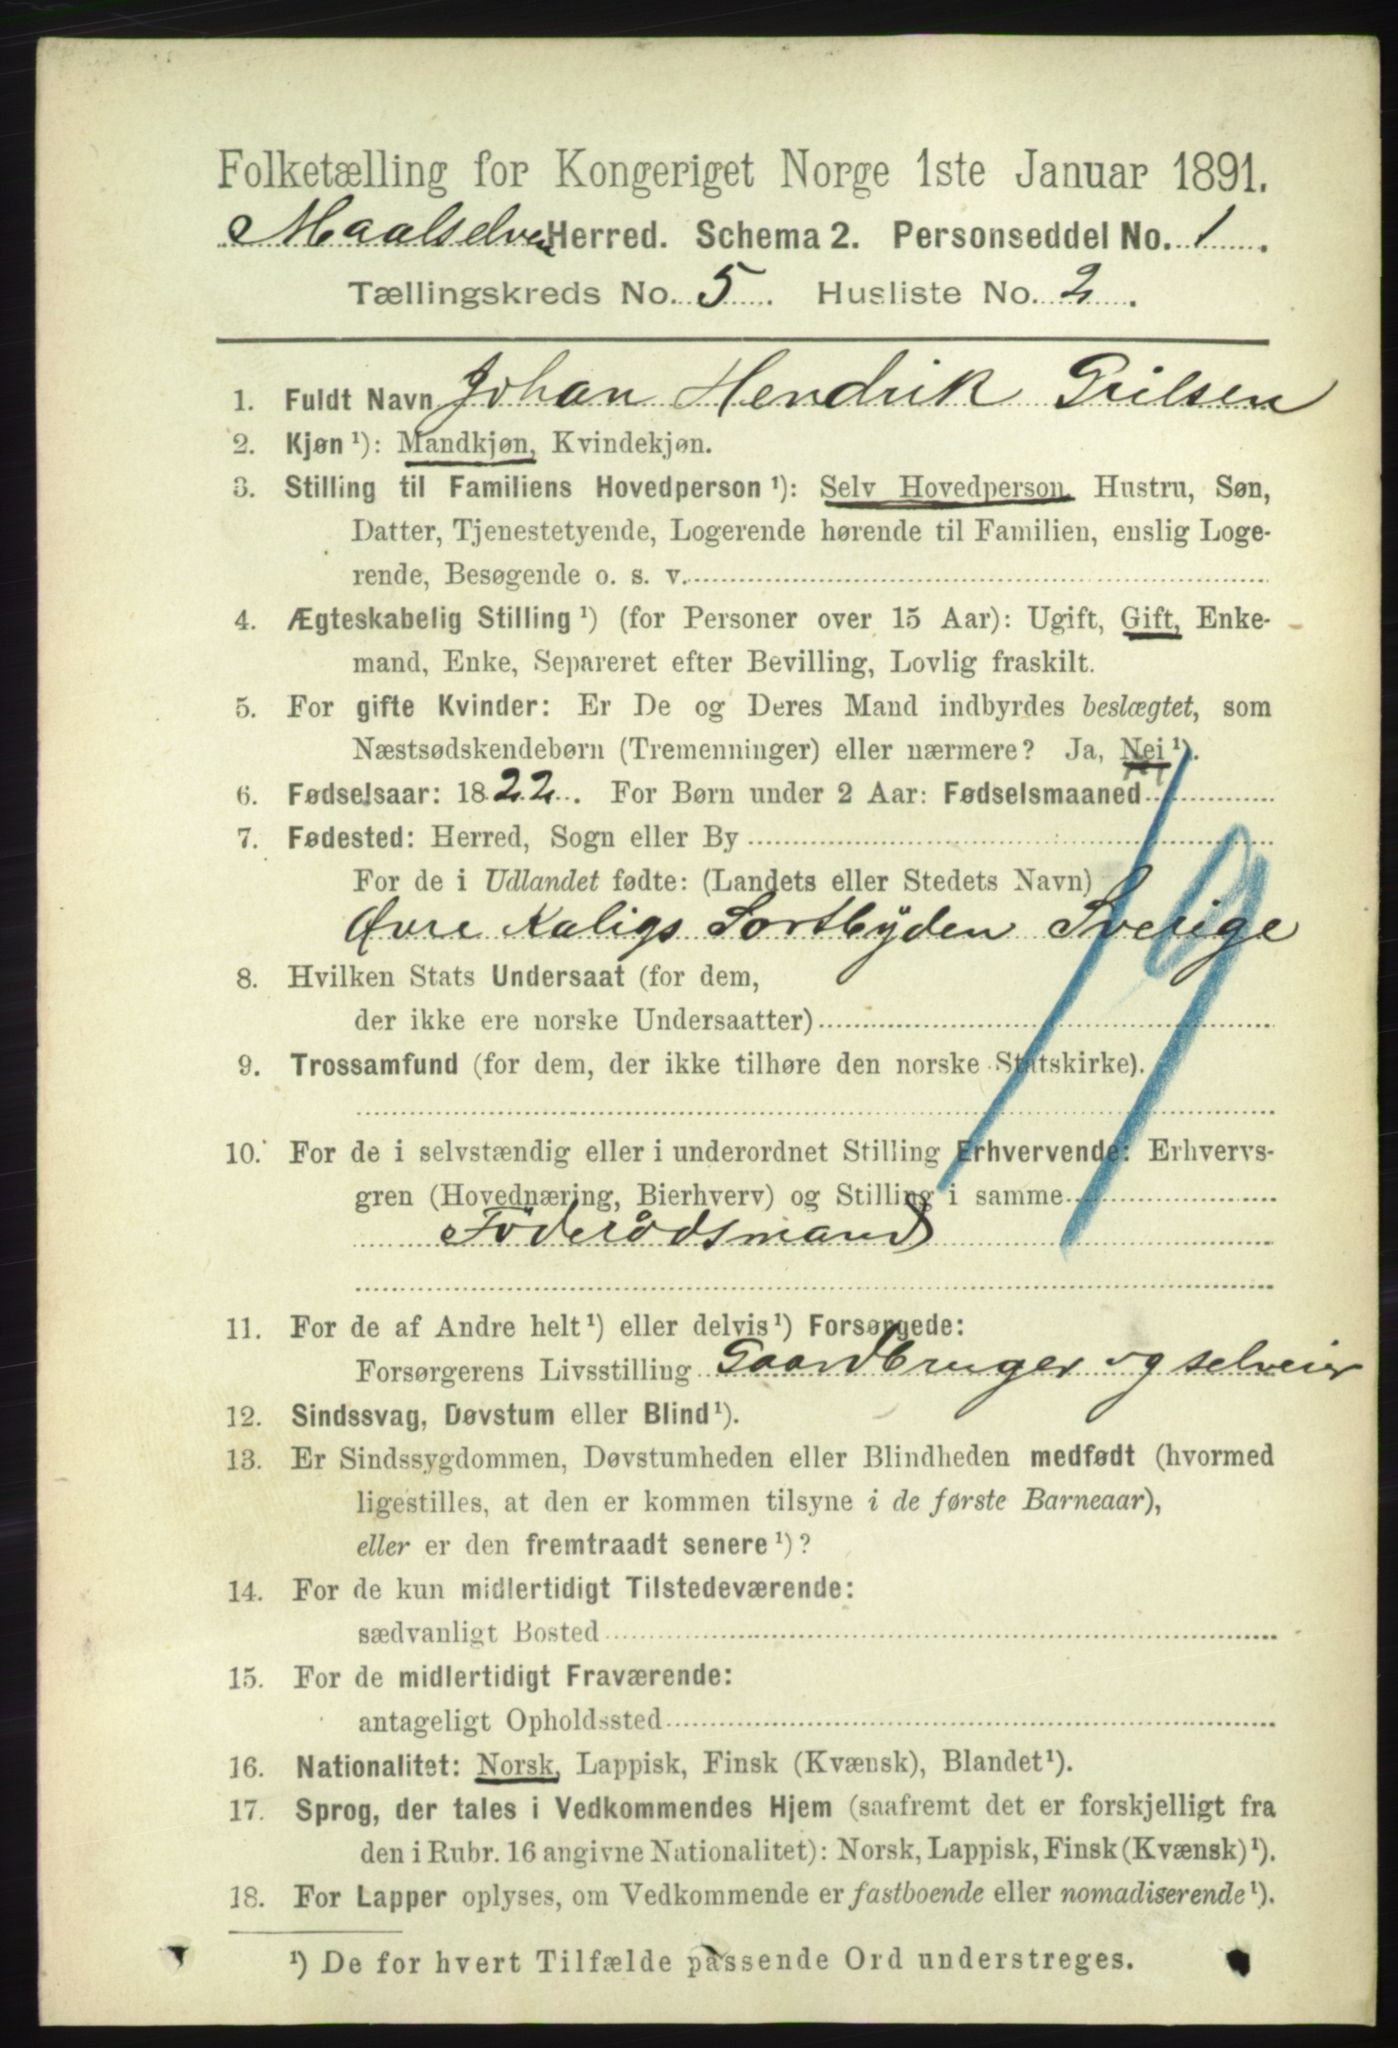 Folketælling for Kongeriget Norge 1ste Januar 1891.
Maalselven Herred. Schema 2. Personseddel No. 1.
Tællingskreds No. 5. Husliste No. 2.
1. Fuldt Navn Johan Hendrik Grilsen
2. Kjøn¹): Mandkjøn, Kvindekjøn.
3. Stilling til Familiens Hovedperson¹): Selv Hovedperson, Hustru, Søn,
Datter, Tjenestetyende, Logerende hørende til Familien, enslig Loge-
rende, Besøgende o. s. v.
4. Ægteskabelig Stilling¹) (for Personer over 15 Aar): Ugift, Gift, Enke-
mand, Enke, Separeret efter Bevilling, Lovlig fraskilt.
5. For gifte Kvinder: Er De og Deres Mand indbyrdes beslægtet, som
Næstsødskendebørn (Tremenninger) eller nærmere? Ja, Nei¹).
6. Fødselsaar: 1822. For Børn under 2 Aar: Fødselsmaaned
7. Fødested: Herred, Sogn eller By
For de i Udlandet fødte: (Landets eller Stedets Navn)
Øvre Kaligs Sortbÿden Sverige
8. Hvilken Stats Undersaat (for dem,
der ikke ere norske Undersaatter)
9. Trossamfund (for dem, der ikke tilhøre den norske Statskirke).
19
10. For de i selvstændig eller i underordnet Stilling Erhvervende: Erhvervs-
gren (Hovednæring, Bierhverv) og Stilling i samme
Föderådsmand
11. For de af Andre helt¹) eller delvis¹) Forsørgede:
Forsørgerens Livsstilling Gaardbruger og selveier
12. Sindssvag, Døvstum eller Blind¹).
13. Er Sindssygdommen, Døvstumheden eller Blindheden medfødt (hvormed
ligestilles, at den er kommen tilsyne i de første Barneaar),
eller er den fremtraadt senere¹)?
14. For de kun midlertidigt Tilstedeværende:
sædvanligt Bosted
15. For de midlertidigt Fraværende:
antageligt Opholdssted
16. Nationalitet: Norsk, Lappisk, Finsk (Kvænsk), Blandet¹).
17. Sprog, der tales i Vedkommendes Hjem (saafremt det er forskjelligt fra
den i Rubr. 16 angivne Nationalitet): Norsk, Lappisk, Finsk (Kvænsk)¹).
18. For Lapper oplyses, om Vedkommende er fastboende eller nomadiserende¹).
¹) De for hvert Tilfælde passende Ord understreges.